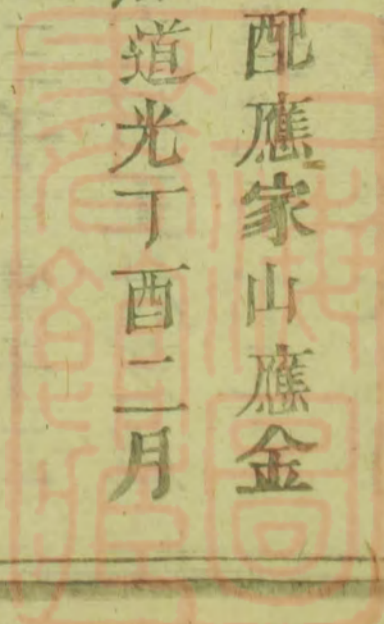 配應家山應金
道光丁酉二月